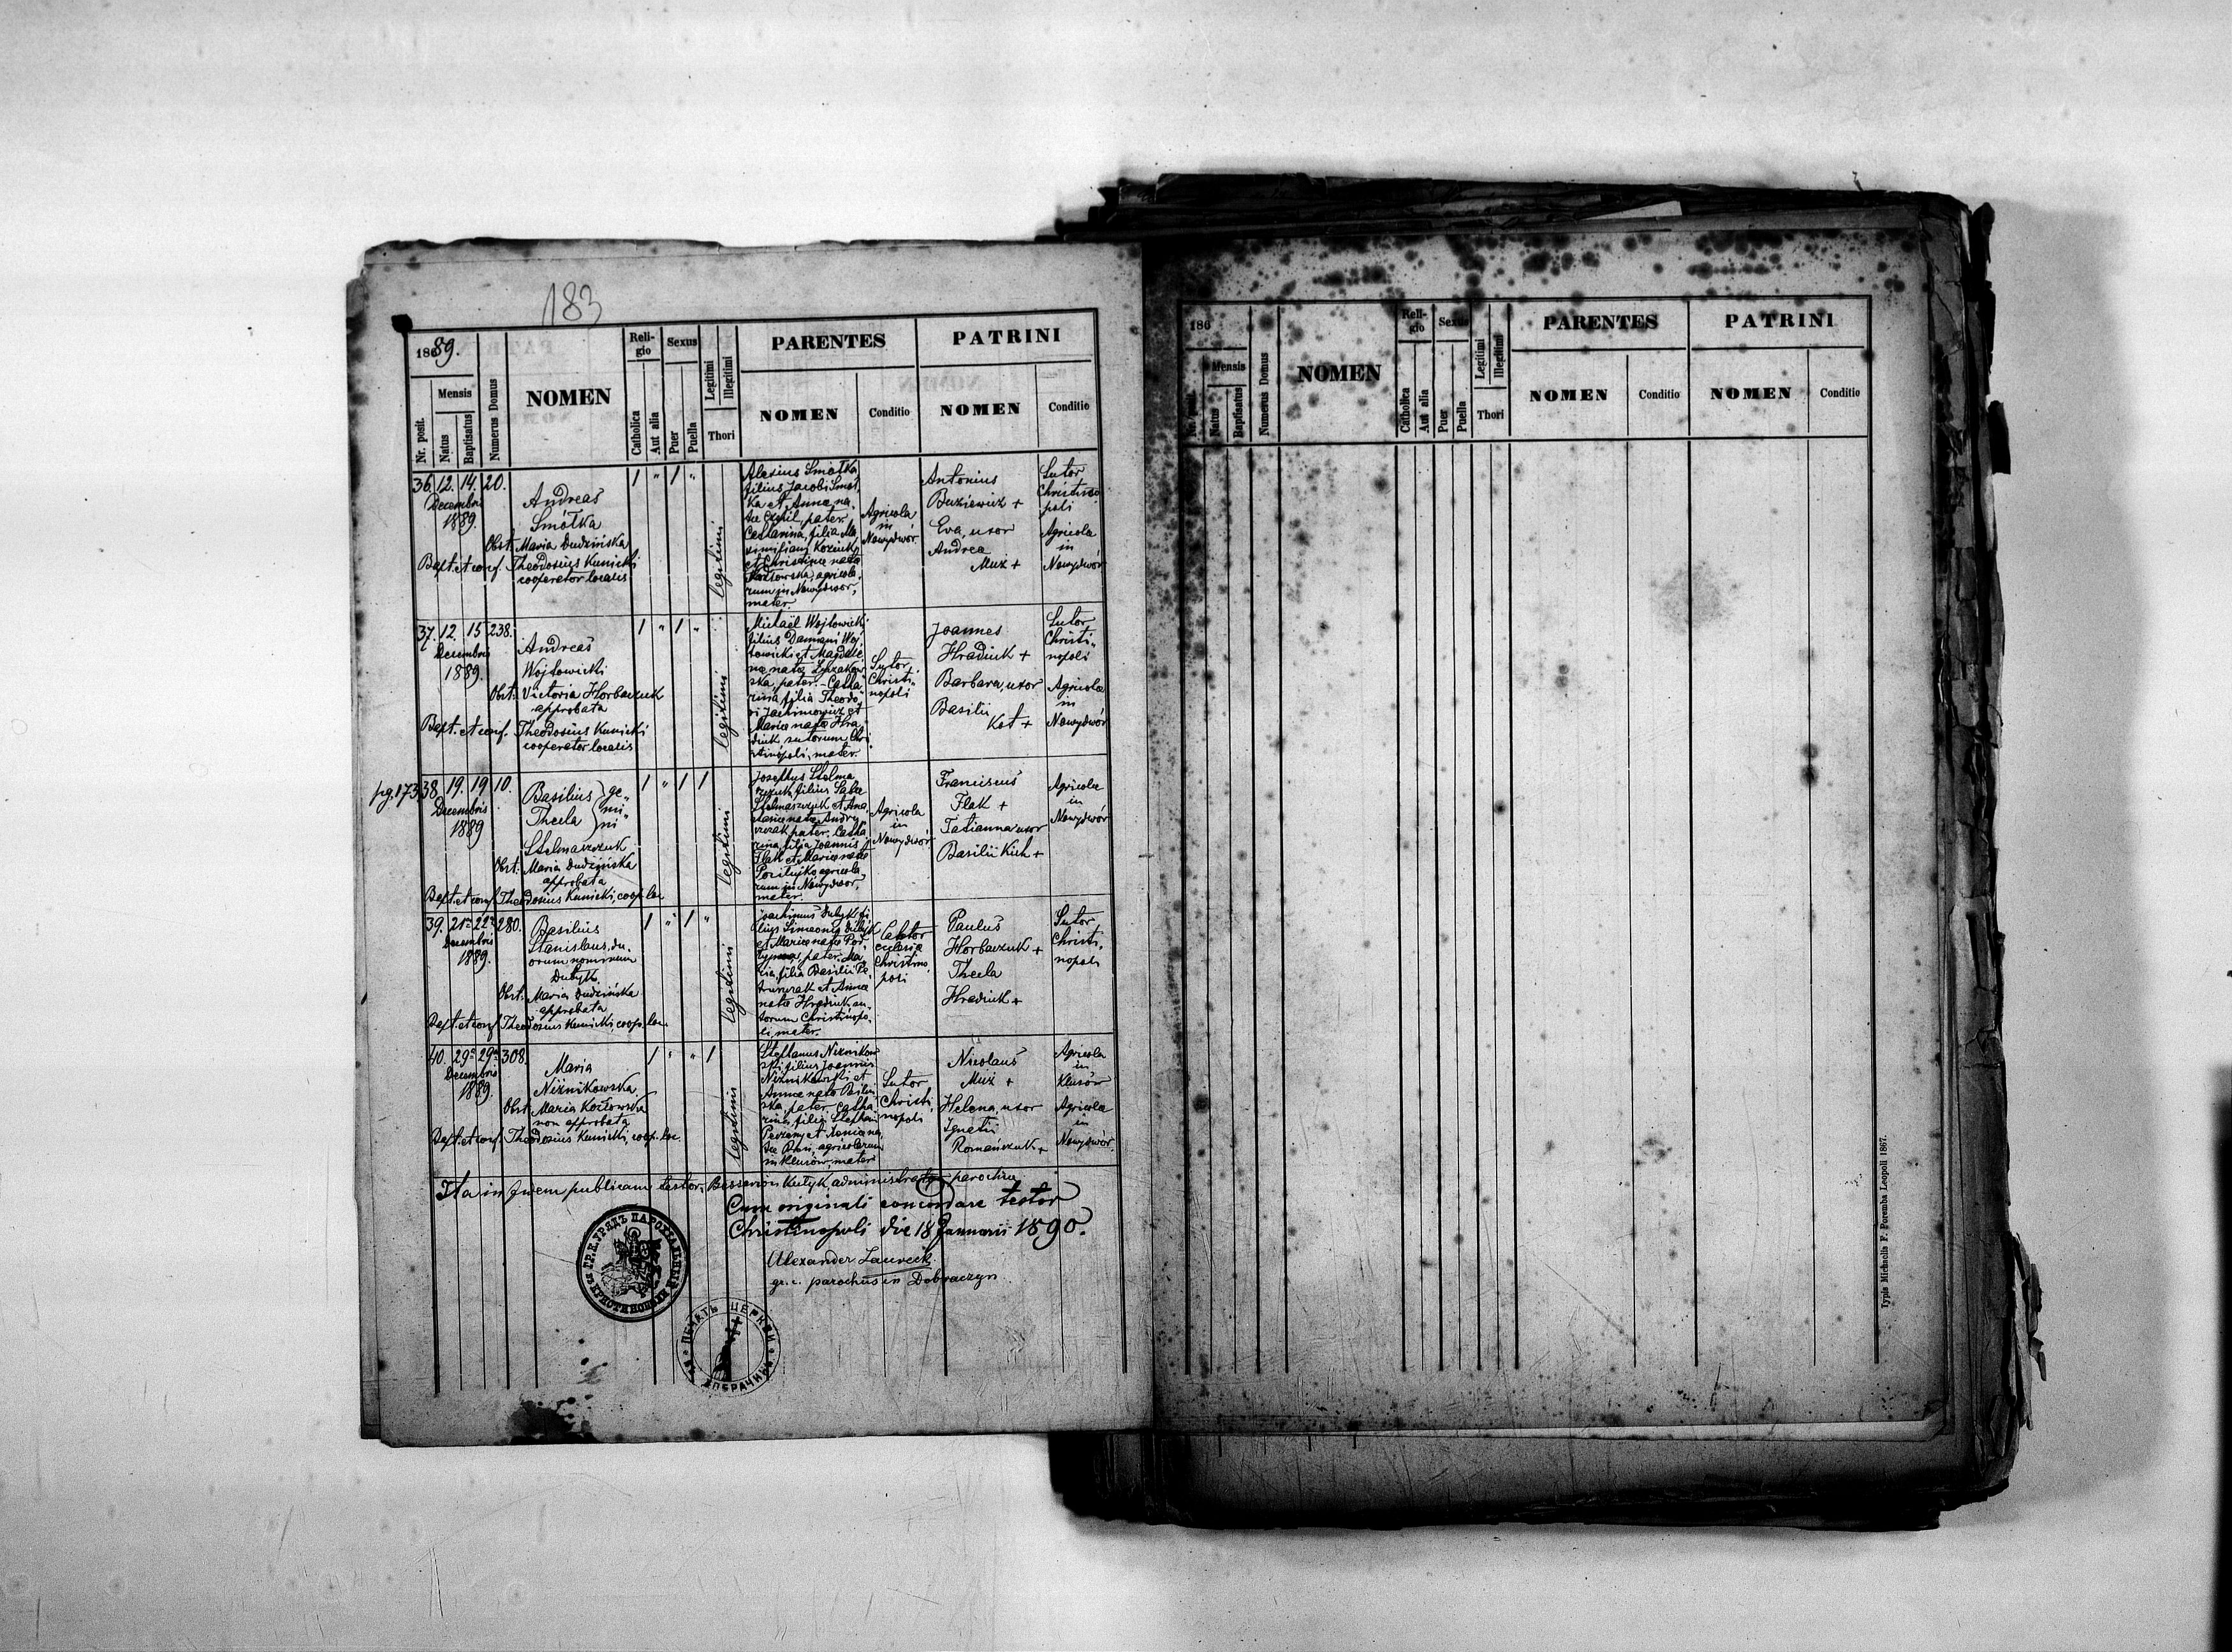 183
1889.
Nr. posit.
Mensis
Natus
Baptisatus
Numerus Domus
NOMEN
Reli-
gio
Catholica
Aut alia
Sexus
Puer
Puella
Legitimi
Illegitimi
Thori
PARENTES
NOMEN
Conditio
PATRINI
NOMEN
Conditio
36. 12. 14. 20.
Decembris
1889.
Andreas
Smółka
Obst. Maria Dudzińska
Bapt. et conf. Theodosius Kunicki
cooperator localis
1 " 1 "
legitimi
Alexius Smółka
filius Jacobi Smół
ka et Anna na
ta pater
Catharina, filia Ma
ximiliani
et Christina nata
Kozłowska, agricola
rum in Nowydwór,
mater.
Agricola
in
Nowydwór
Antonius
Buziewicz +
Eva, uxor
Andrea
Muz +
Sutor
Christino
poli
Agricola
in
Nowydwór
37. 12. 15 238.
Decembris
1889.
Andreas
Wojtowicki
Obst. Victoria Horbaczuk
approbata
Bapt. et conf. Theodosius Kunicki
cooperator localis
1 " 1 "
legitimi
Michaël Wojtowicki
filius Damiani Woj
towicki et Magdale
na nata
ska, pater. - Catha
rina, filia Theodo
si Jachimowicz et
Maria nata Hra
diuk sutorum Chri
stinopoli, mater.
Sutor
Christi"
nopoli
Joannes
Hradiuk +
Barbara, uxor
Basilii
Kot +
Sutor
Christi"
nopoli
Agricola
in
Nowydwór
pg. 173
38. 19. 19 10.
Decembris
1889
Basilius } ge"
Thecla } mi"
ni
Stelmaszczuk
Obst. Maria Dudzińska
approbata
Bapt. et conf. Theodosius Kunicki, coop. loc.
1 " 1 1
legitimi
Josephus Stelma
szczuk, filius Sabae
Stelmaszczuk et Ana
stasia nata Andry
szczak pater. Catha
rina, filia Joannis
Flak et Maria nata
agricola
rum in Nowydwór,
mater.
Agricola
in
Nowydwór
Franciscus
Flak +
Tatianna uxor
Basilii Kich +
Agricola
in
Nowydwór
39. 21a 22a 280.
Decembris
1889.
Basilius
Stanislaus, du.
orum nominum
Dubyk
Obst. Maria Dudzińska
approbata
Bapt. et conf. Theodosius Kunicki, coop. loc.
1 " 1 "
legitimi
Joachimus Dubyk fi
lius Simeonis Dubyk
et Maria nata
pater. Ma
ria, filia Basilii Pe
et Anna
nata Hradiuk su
torum Christinopo
li, mater.
Cantor
ecclesia
Christino
poli
Paulus
Horbaczuk +
Thecla
Hradiuk +
Sutor
Christi,
nopoli
40. 29a 29a 308.
Decembris
1889.
Maria
Niżnikowska
Obst. Maria Kozłowska
non approbata
Bapt. et conf. Theodosius Kunicki, coop. loc.
1 " " 1
legitimi
Stephanus Niżnikow
ski filius Joannis
Niżnikowski et
Anna nata
ska, pater. Catha
rina, filia Stephani
et Xenia na
ta agricolarum
in Klusów, mater
Sutor
Christi,
nopoli
Nicolaus
Muż +
Helena, uxor
Ignatii
Romańczuk +
Agricola
in
Klusów
Agricola
in
Nowydwór.
Ita in fidem publicam testor, Bessarion Kutyk, administrator parochiæ
Cum originali concordare testor
Christinopoli die 18 Januarii 1890.
Alexander Laurecki
gr. c. parochus in Dobraczyn
ГР. К. УРЯДЪ ПАРОХІАЛЬНЫЙ
ВЪ КРИСТИНОПОЛИ
ПЕЧАТЬ ЦЕРКВИ
ВЪ ДОБРАЧИНѢ
186
Nr. posit.
Mensis
Natus
Baptisatus
Numerus Domus
NOMEN
Reli-
gio
Catholica
Aut alia
Sexus
Puer
Puella
Legitimi
Illegitimi
Thori
PARENTES
NOMEN
Conditio
PATRINI
NOMEN
Conditio
Typis Michaelis F. Poremba Leopoli 1867.